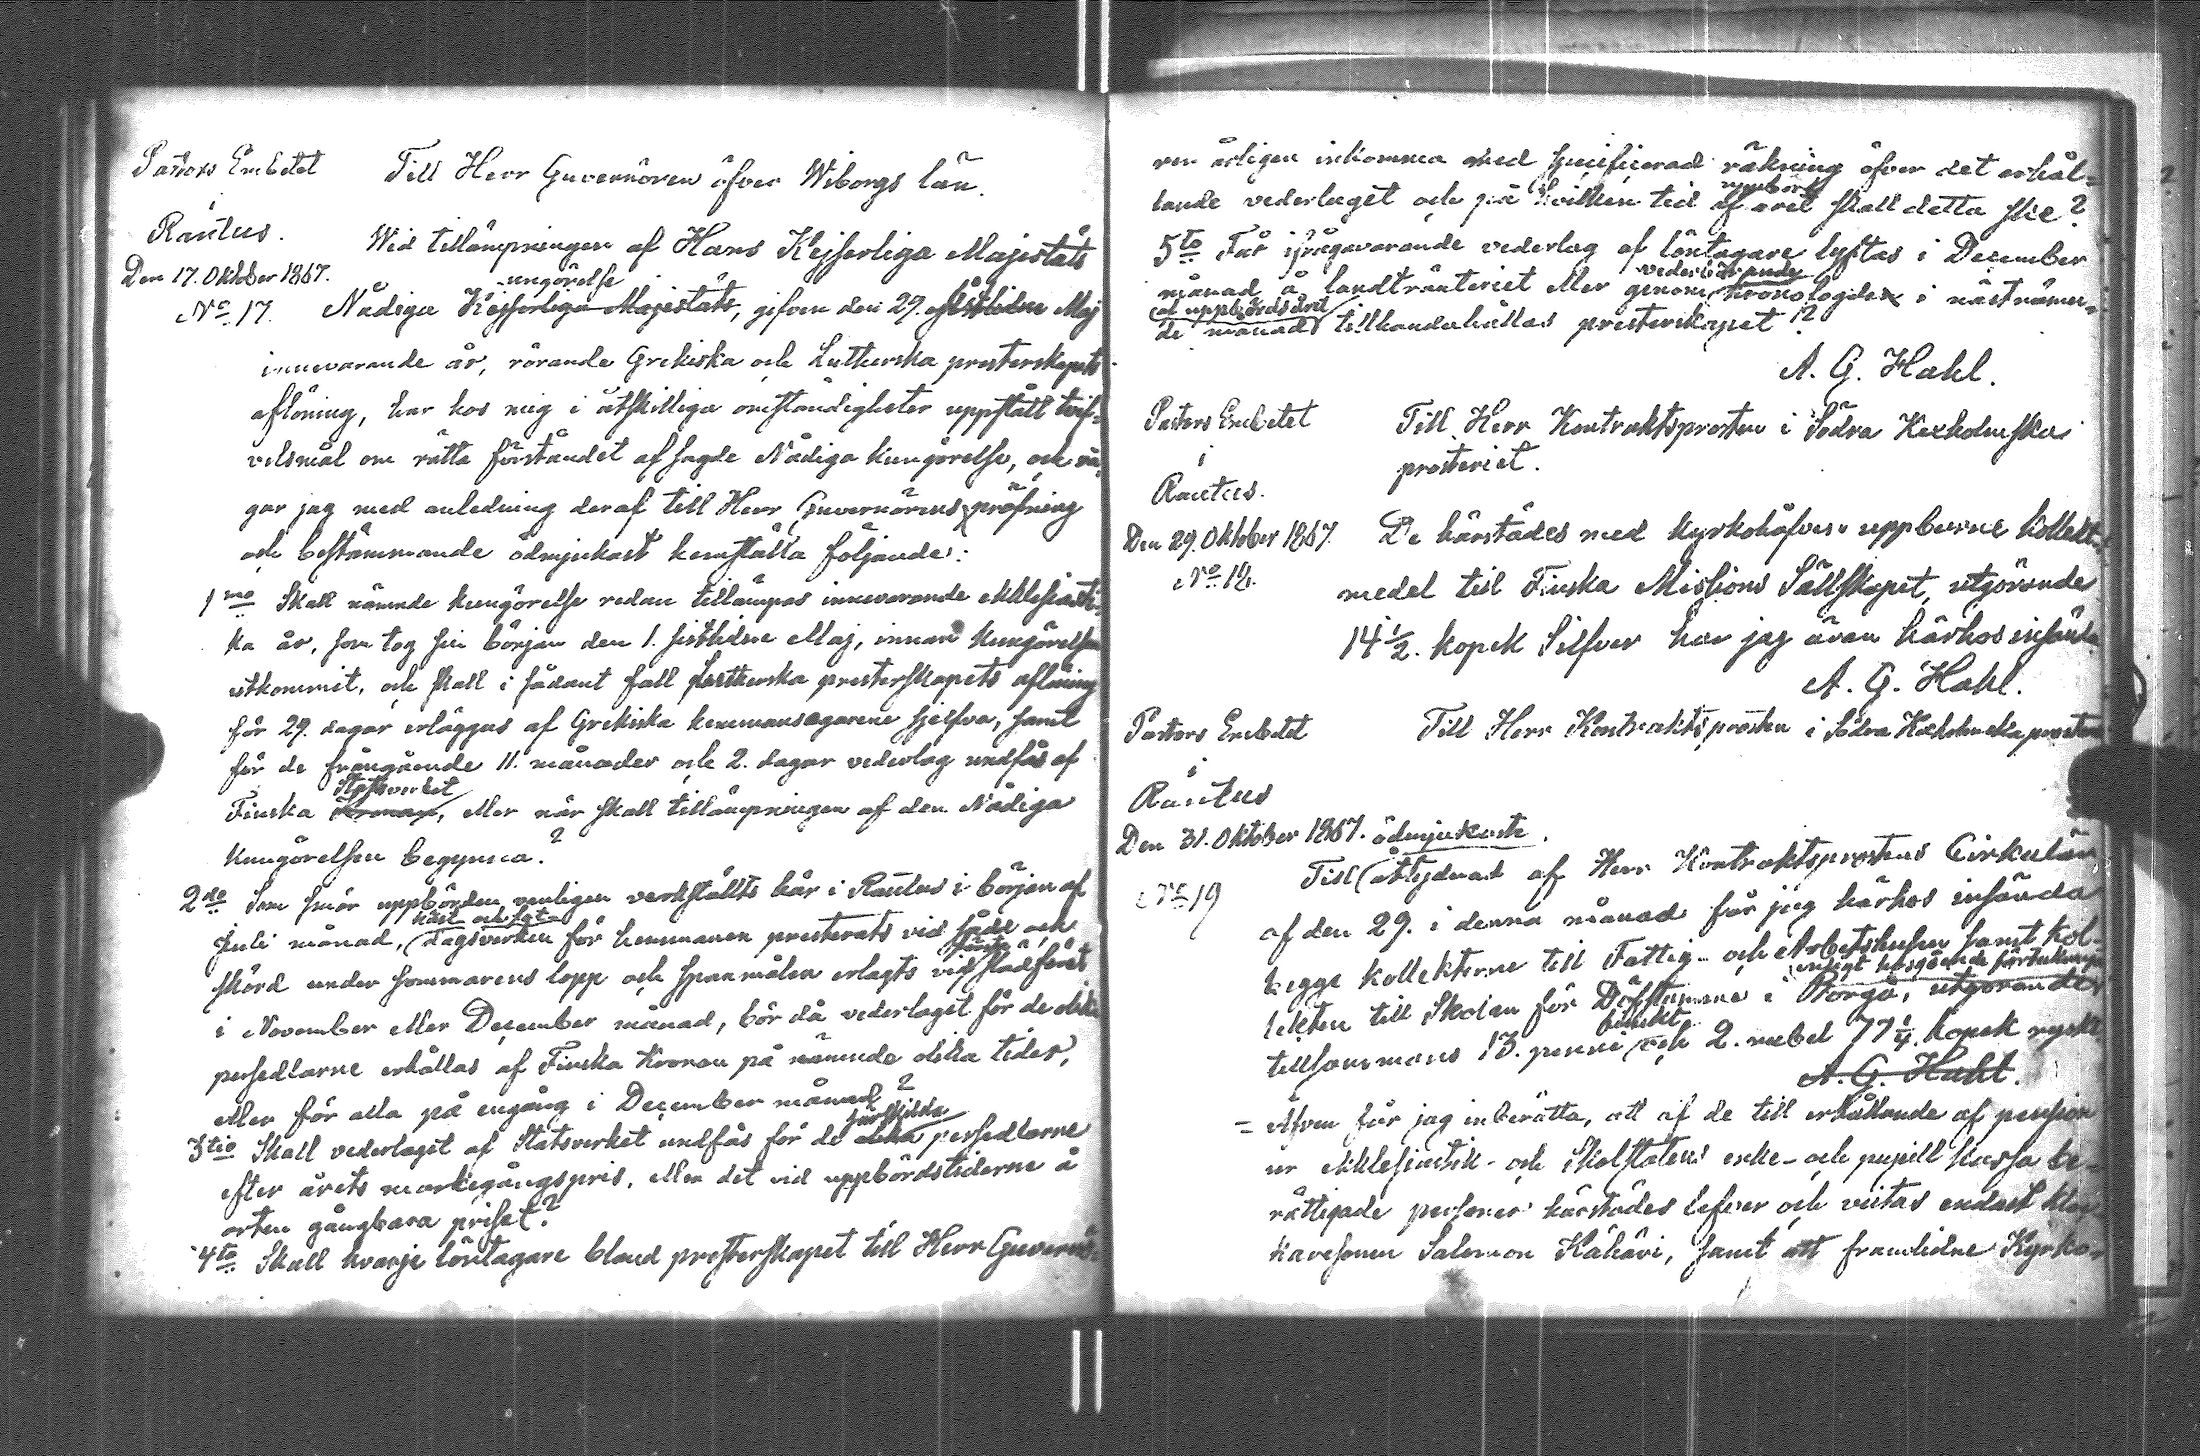 Pastors Embetet
i
Rautus.
Den 17. Oktober 1867.
No 17.
Till Herr Guvernören öfver Wiborgs län.
Wid tillämpningen af Hans Kejserliga Majestäts
Nådiga Kejserliga Majestäts, gifven den 29. sistlidne Maj
innevarande år, rörande Grekiska och Lutherska presterskapets
aflöning, har hos mig i åtskilliga omständigheter uppstått tvif-
velsmål om rätta förståndet af sagde Nådiga kungörelse, och vå-
gar jag med anledning deraf till Herr Guvernörens pröfning
och bestämmande ödmjukast hemställa följande:
1mo Skall nämnde kungörelse redan tillämpas innevarande ekklesiasti-
ka år, som tog sin början den 1. sistlidne Maj, innan kungörelsen
utkommit, och skall i sådant fall Lutherska presterskapets aflöning
för 29. dagar erläggas af Grekiska hemmansegarene sjelfva, samt
för de frångående 11. månader och 2. dagar vederlag undfås af
Statsverket
Finska Kronan, eller när skall tillämpningen af den Nådiga
Kungörelsen begynna?
2do Som smör uppbörden vanligen verkställts här i Rautus i början af
häst och fot
Juli månad, dagsverken för hemmanen presterats vid sådd och
första
skörd under sommarens lopp och spanmålen erlagts vid slädföret
i November eller December månad, bör då vederlaget för de olika
persedlarne erhållas af Finska Kronan på nämnde olika tider,
eller för alla på engång i December månad?
särskilda
3tio Skall vederlaget af Statsverket undfås för de olika persedlarne
efter årets markegångspris, eller det vid uppbördstiderne å
orten gångbara priset?
4to Skall hvarje löntagare bland presterskapet till Herr Guvernö-
ren årligen inkomma med specificerad räkning öfver det erhål-
lande vederlaget och på hvilken tid af året skall detta ske?
5to Får ifrågavarande vederlag af löntagare lyftas i December
vederbörande
månad å landtränteriet eller genom kronologden i nästnämn-
å uppbördsdel
de månad tillhandahållas presterskapet?
A. G. Hahl.
Pastors Embetet
i
Rautus.
Den 29. Oktober 1867.
No 18.
Till Herr Kontraktsprosten i Södra Kexholmska
prosteriet.
De härstädes med kyrkohåfven uppburne kollekt-
medel till Finska Missions Sällskapet, utgörande
14 1/2. kopek Silfver har jag äran härhos insända
A. G. Hahl.
Pastors Embetet
i
Rautus
Den 31. Oktober 1867.
No 19
Till Herr Kontraktsprosten i Södra Kexholmska prosteri
ödmjukaste
Till åtlydnad af Herr Kontraktsprostens Cirkulär
af den 29. i denna månad får jag härhos insända
begge kollekterne till Fattig- och Arbetshusen samt kol-
enligt hosgående förteckning
lekten till Skolan för Döfstumme i Borgå, utgörande
finskt
tillsammans 13. penni och 2. rubel 77 1/4. kopek ryskt
A. G. Hahl.
= Äfven får jag inberätta, att af de till erhållande af pension
ur ekklesiastik- och Skolstatens enke- och pupill kassa be-
rättigade personer härstädes lefver och vistas endast klo-
karesonen Salomon Kähävi, samt att framlidne Kyrko-